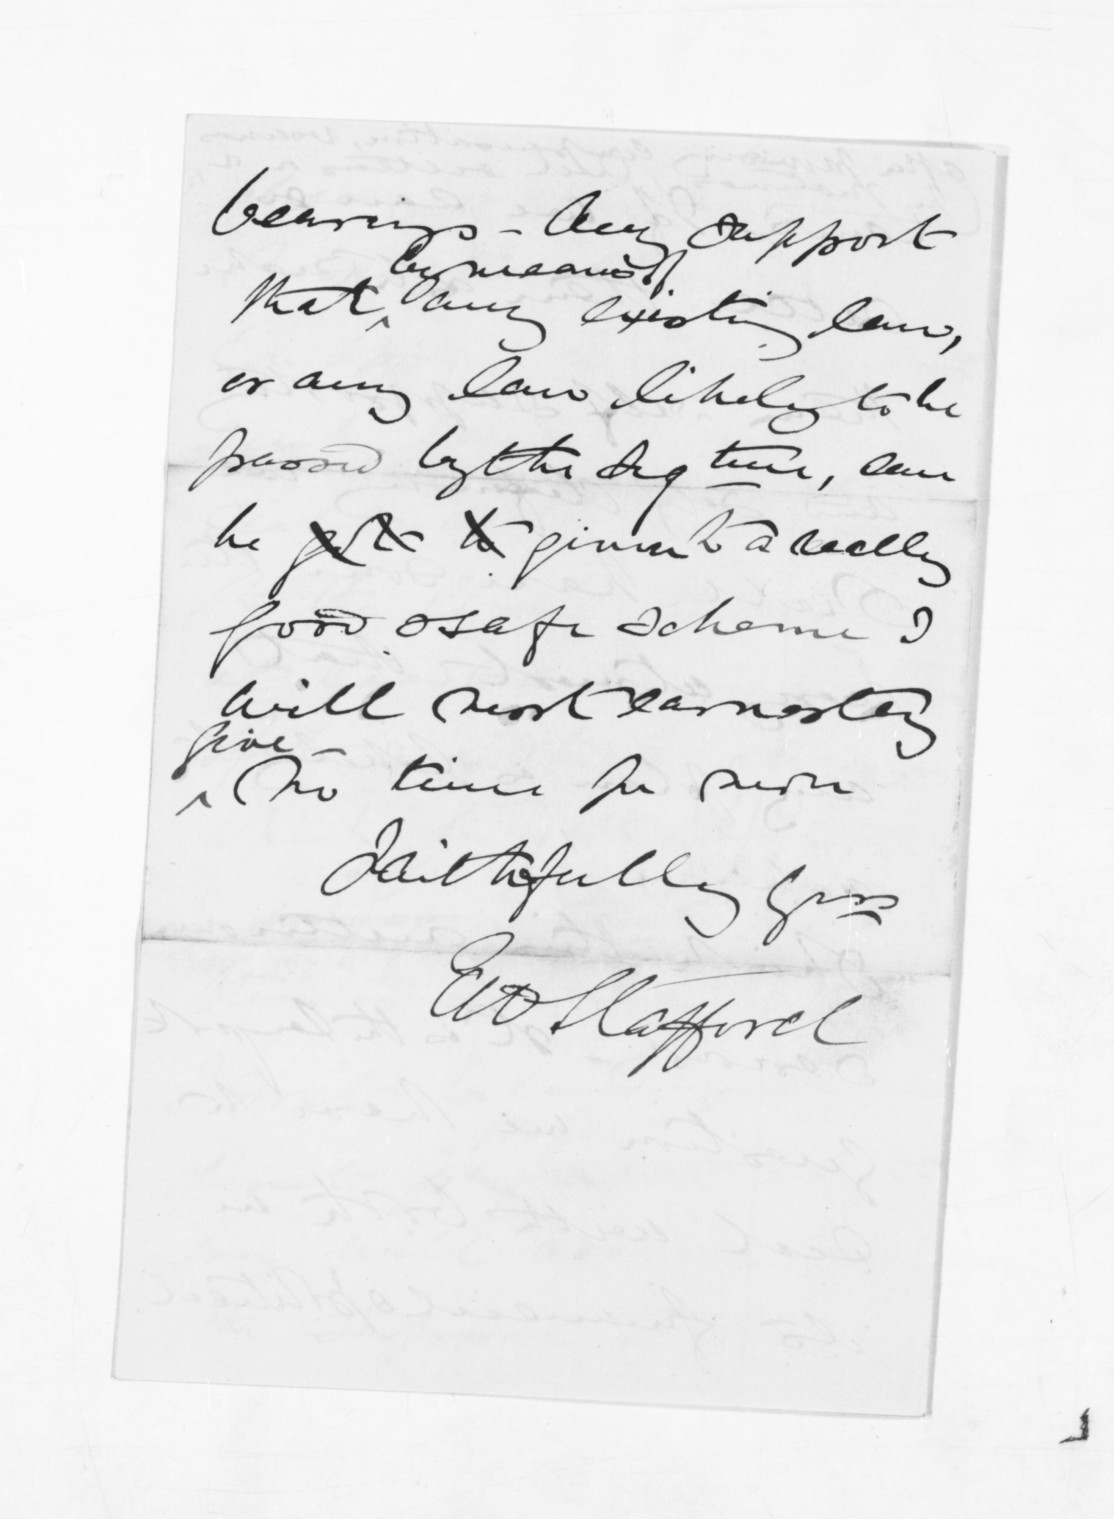 bearings - Any support
by means of
that any existing law,
or any law likely to be
passed by the Leg ture, can
be given to a really
good & safe scheme I
will most earnestly
give -
No time for more
Faithfully yrs
EW Stafford